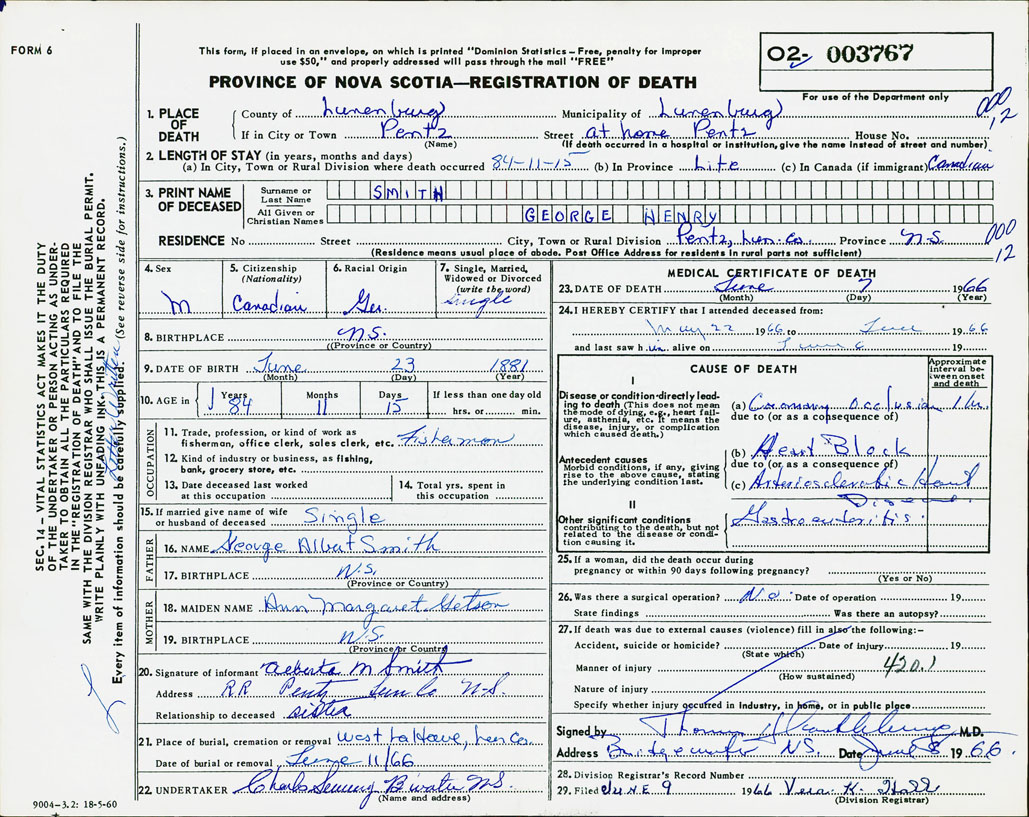 FORM 6
This form, if placed in an envelope, on which is printed "Dominion Statistics – Free, penalty for improper
use $50," and properly addressed will pass through the mail "FREE"
PROVINCE OF NOVA SCOTIA—REGISTRATION OF DEATH
O2- 003767
For use of the Department only
000
12
1. PLACE OF DEATH
County of Lunenburg Municipality of Lunenburg
If in City or Town Pentz Street at home Pentz House No.
(Name) (If death occurred in a hospital or institution, give the name instead of street and number)
2. LENGTH OF STAY (in years, months and days)
(a) In City, Town or Rural Division where death occurred 84-11-15 (b) In Province Life (c) In Canada (if immigrant) Canadian
3. PRINT NAME OF DECEASED
Surname or Last Name SMITH
All Given or Christian Names GEORGE HENRY
RESIDENCE No Street City, Town or Rural Division Pentz, Lun. Co. Province N.S.
000
12
(Residence means usual place of abode. Post Office Address for residents in rural parts not sufficient)
4. Sex
M
5. Citizenship
(Nationality)
Canadian
6. Racial Origin
Ger.
7. Single, Married,
Widowed or Divorced
(write the word)
Single
8. BIRTHPLACE N.S.
((Province or Country)
9. DATE OF BIRTH June 23 1881
(Month) (Day) (Year)
10. AGE in Years 84 Months 11 Days 15 If less than one day old
hrs. or min.
OCCUPATION
11. Trade, profession, or kind of work as
fisherman, office clerk, sales clerk, etc. Fisherman
12. Kind of industry or business, as fishing,
bank, grocery store, etc.
13. Date deceased last worked
at this occupation
14. Total yrs. spent in
this occupation
15. If married give name of wife
or husband of deceased Single
FATHER
16. NAME George Albert Smith
17. BIRTHPLACE N.S.
(Province or Country)
MOTHER
18. MAIDEN NAME Ann Margaret Getson
19. BIRTHPLACE N.S.
(Province or Country)
20. Signature of informant Alberta M Smith
Address RR Pentz Lun Co N-S.
Relationship to deceased sister
21. Place of burial, cremation or removal West LaHave, Lun Co.
Date of burial or removal June 11/66
22. UNDERTAKER Charles B'water N.S.
(Name and address)
9004–3.2: 18-5-60
MEDICAL CERTIFICATE OF DEATH
23. DATE OF DEATH June 7 1966
(Month) (Day) (Year)
24. I HEREBY CERTIFY that I attended deceased from:
May 22 1966 to June 1966
and last saw him alive on June 6 19
CAUSE OF DEATH
Approximate
interval be-
tween onset
and death
I
Disease or condition directly lead-
ing to death (This does not mean
the mode of dying, e.g., heart fail-
ure, asthenia, etc. It means the
disease, injury, or complication
which caused death.)
(a) Coronary Occlusion 1 hr.
due to (or as a consequence of)
Antecedent causes
Morbid conditions, if any, giving
rise to the above cause, stating
the underlying condition last.
(b) Heart Block
due to (or as a consequence of)
(c) Arteriosclerotic Heart
Disease.
II
Other significant conditions
contributing to the death, but not
related to the disease or condi-
tion causing it.
Gastroenteritis.
25. If a woman, did the death occur during
pregnancy or within 90 days following pregnancy?
(Yes or No)
26. Was there a surgical operation? No. Date of operation 19
State findings Was there an autopsy?
27. If death was due to external causes (violence) fill in also the following:–
Accident, suicide or homicide? Date of injury 19
(State which)
Manner of injury 420.1
(How sustained)
Nature of injury
Specify whether injury occurred in industry, in home, or in public place
Signed by Thomas M.D.
Address Bridgewater N.S. Date June 8 1966.
28. Division Registrar's Record Number
29. Filed JUNE 9 1966 Vera K. Hall
(Division Registrar)
SEC. 14 – VITAL STATISTICS ACT MAKES IT THE DUTY
OF THE UNDERTAKER OR PERSON ACTING AS UNDER-
TAKER TO OBTAIN ALL THE PARTICULARS REQUIRED
IN THE "REGISTRATION OF DEATH" AND TO FILE THE
SAME WITH THE DIVISION REGISTRAR WHO SHALL ISSUE THE BURIAL PERMIT.
WRITE PLAINLY WITH UNFADING INK. THIS IS A PERMANENT RECORD.
Every item of information should be carefully supplied. (See reverse side for instructions.)